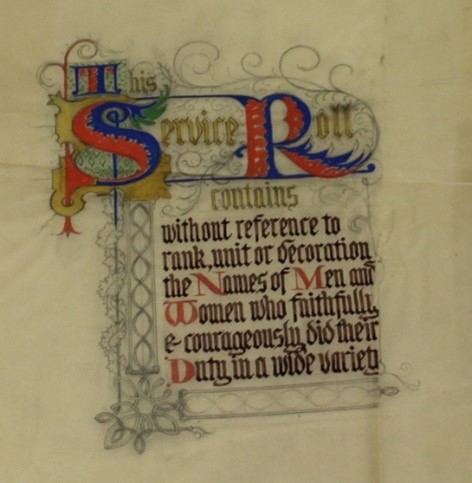 This
Service Roll
contains
without reference to
rank, unit or decoration
the Names of Men and
Women who faithfully,
& courageously, did their
Duty in a wide variety